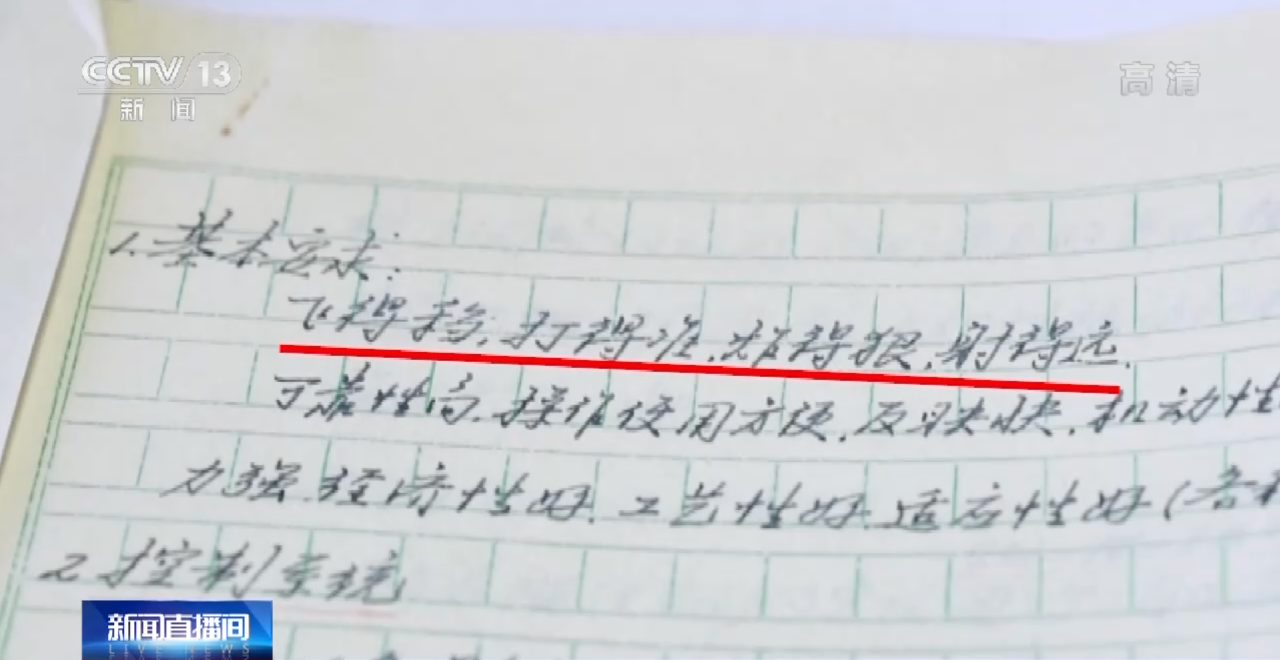 CCTV 13
新闻
高清
1.基本要求:
飞得稳,打得准,炸得狠,射得远.
可靠性高,操作使用方便,反映快,机动性
力强 经济性好,工艺性好,适应性好(各种
2 控制系统
新闻直播间
LIVE NEWS